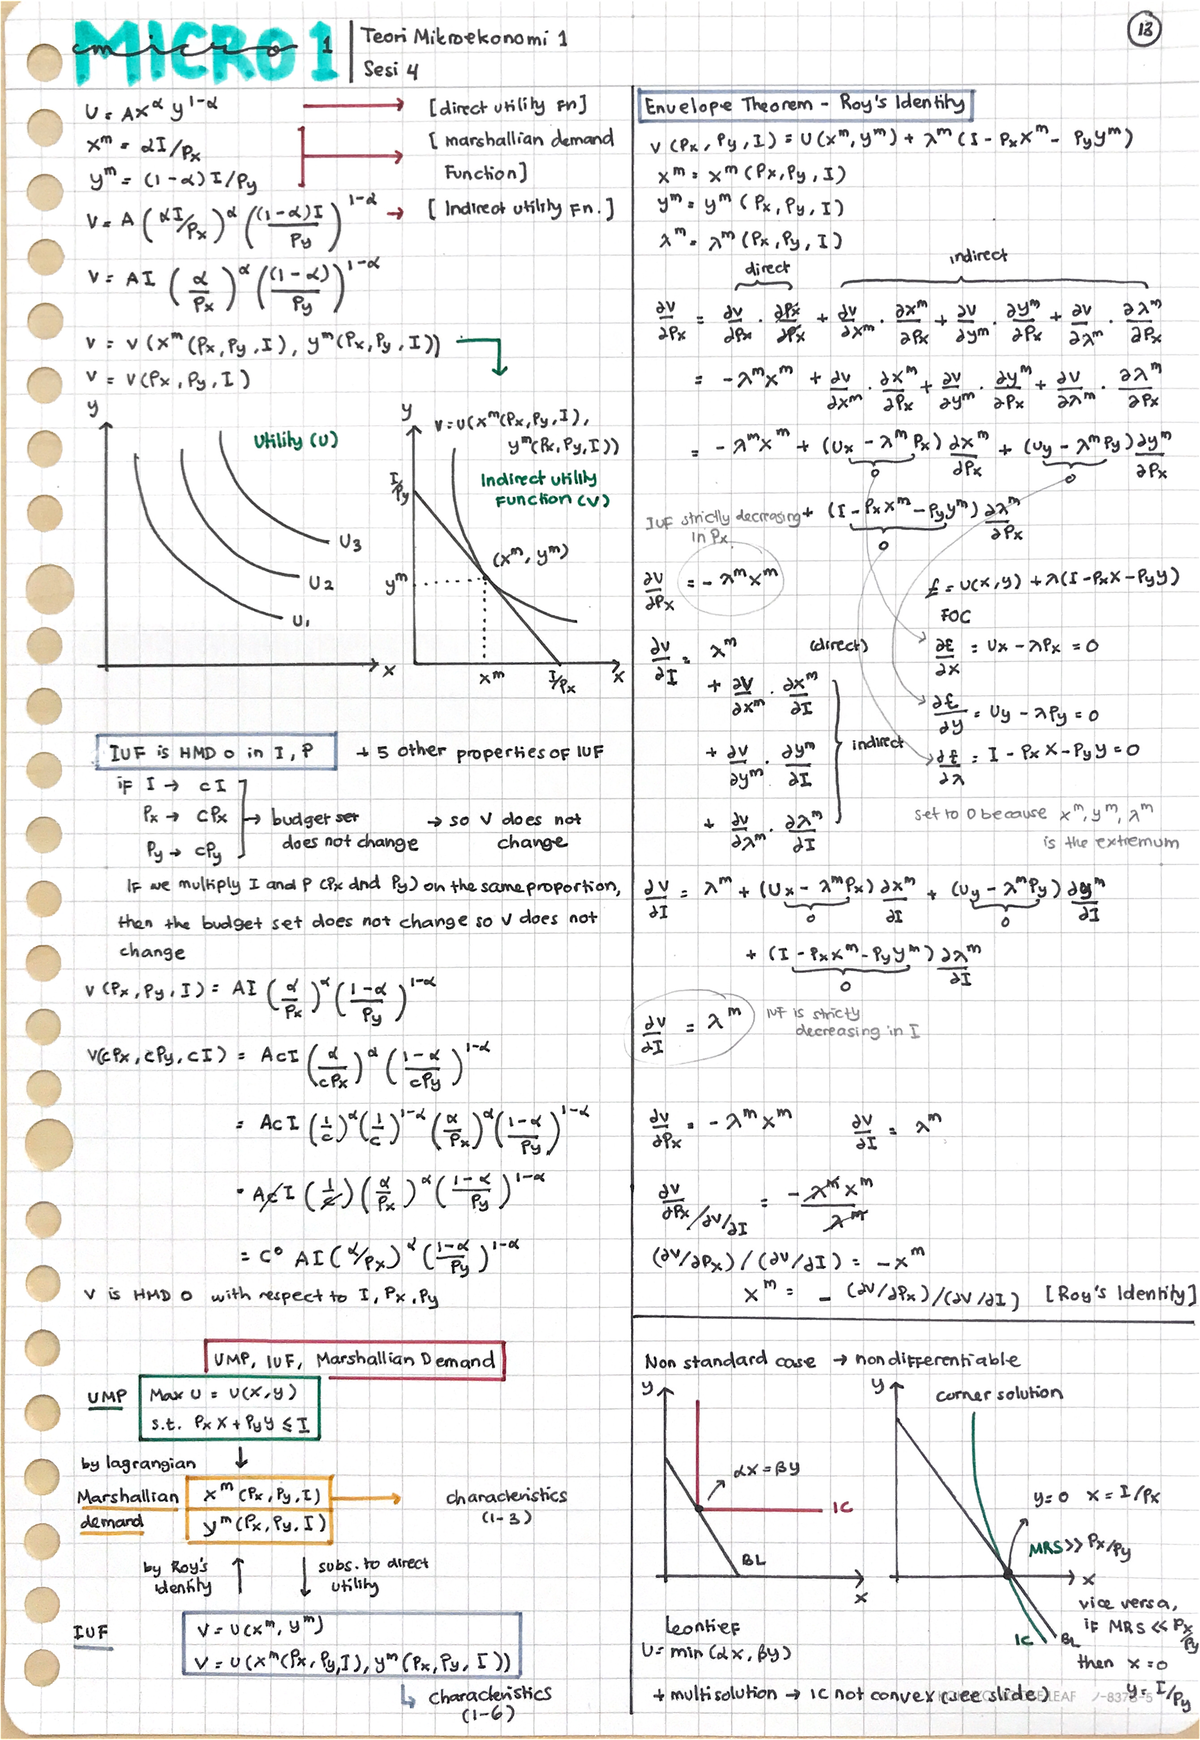 MICRO 1
micro 1
Teori Mikroekonomi 1
Sesi 4
18
U = Ax^α y^1-α → [direct utility Fn]
x^m = αI/Px
y^m = (1-α)I/Py
→ [marshallian demand Function]
V = A (αI/Px)^α ((1-α)I/Py)^1-α → [Indirect utility Fn.]
V = AI (α/Px)^α ((1-α)/Py)^1-α
V = V(x^m(Px,Py,I), y^m(Px,Py,I))
V = V(Px,Py,I)
y
Utility (U)
U3
U2
U1
x
y
V=U(x^m(Px,Py,I),
y^m(Px,Py,I))
I/Py
Indirect utility
Function (V)
(x^m, y^m)
y^m
x^m
I/Px
x
IUF is HMD 0 in I, P + 5 other properties of IUF
if I → cI
Px → cPx
Py → cPy
→ budget set does not change → so V does not change
If we multiply I and P (Px and Py) on the same proportion,
then the budget set does not change so V does not
change
V(Px,Py,I) = AI (α/Px)^α (1-α/Py)^1-α
V(cPx,cPy,cI) = AcI (α/cPx)^α (1-α/cPy)^1-α
= AcI (1/c)^α (1/c)^1-α (α/Px)^α (1-α/Py)^1-α
= AcI (1/c) (α/Px)^α (1-α/Py)^1-α
= c^0 AI (α/Px)^α (1-α/Py)^1-α
V is HMD 0 with respect to I, Px, Py
UMP, IUF, Marshallian Demand
UMP
Max U = U(x,y)
s.t. Px X + Py Y ≤ I
by lagrangian
Marshallian
demand
x^m (Px,Py,I)
y^m (Px,Py,I)
characteristics
(1-3)
by Roy's
Identity
subs. to direct
utility
IUF
V = U(x^m, y^m)
V = U(x^m(Px,Py,I), y^m(Px,Py,I))
characteristics
(1-6)
Envelope Theorem - Roy's Identity
V(Px,Py,I) = U(x^m,y^m) + λ^m (I - Px x^m - Py y^m)
x^m = x^m (Px,Py,I)
y^m = y^m (Px,Py,I)
λ^m = λ^m (Px,Py,I)
direct
indirect
∂V/∂Px = ∂V/∂Px . ∂Px/∂Px + ∂V/∂x^m . ∂x^m/∂Px + ∂V/∂y^m . ∂y^m/∂Px + ∂V/∂λ^m . ∂λ^m/∂Px
= -λ^m x^m + ∂V/∂x^m . ∂x^m/∂Px + ∂V/∂y^m . ∂y^m/∂Px + ∂V/∂λ^m . ∂λ^m/∂Px
= -λ^m x^m + (Ux - λ^m Px) ∂x^m/∂Px + (Uy - λ^m Py) ∂y^m/∂Px
0
0
+ (I - Px x^m - Py y^m) ∂λ^m/∂Px
0
IUF strictly decreasing
in Px
∂V/∂Px = -λ^m x^m
£ = U(x,y) + λ(I - Px X - Py Y)
FOC
∂£/∂x = Ux - λPx = 0
∂£/∂y = Uy - λPy = 0
∂£/∂λ = I - Px X - Py Y = 0
set to 0 because x^m, y^m, λ^m
is the extremum
∂V/∂I = λ^m (direct)
+ ∂V/∂x^m . ∂x^m/∂I
+ ∂V/∂y^m . ∂y^m/∂I
+ ∂V/∂λ^m . ∂λ^m/∂I
indirect
∂V/∂I = λ^m + (Ux - λ^m Px) ∂x^m/∂I + (Uy - λ^m Py) ∂y^m/∂I
0
0
+ (I - Px x^m - Py y^m) ∂λ^m/∂I
0
∂V/∂I = λ^m
IUF is stricty
decreasing in I
∂V/∂Px = -λ^m x^m ∂V/∂I = λ^m
∂V/∂Px / ∂V/∂I = -λ^m x^m / λ^m
(∂V/∂Px) / (∂V/∂I) = -x^m
x^m = - (∂V/∂Px)/(∂V/∂I) [Roy's Identity]
Non standard case → nondifferentiable
y
αx = βy
IC
BL
x
Leontief
U = min (αx, βy)
y
corner solution
y=0 x = I/Px
MRS >> Px/Py
x
IC
BL
vice versa,
if MRS << Px/Py
then x = 0
y = I/Py
+ multisolution → IC not convex (see slide)
LEAF